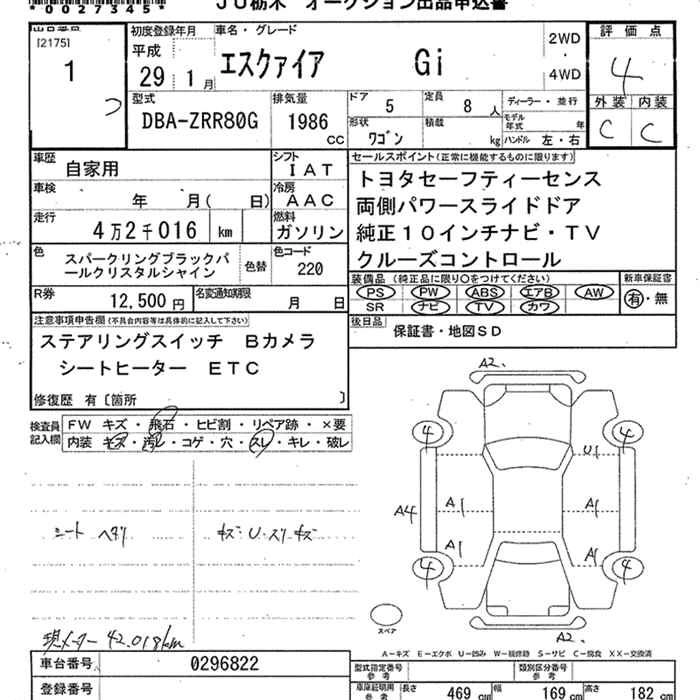 *0027345*
JU栃木 オークション出品申込書
出品番号 初度登録年月 車名・グレード 2WD ・ 4WD 評価点
[2175] 1
平成 29 1月
エスクァイア Gi
4
外装 内装
C C
型式 排気量 ドア 5 定員 8人 ディーラー・並行
DBA-ZRR80G 1986 cc
形状 ワゴン 積載 kg
モデル年式 年
ハンドル 左・右
車歴 自家用 シフト IAT
セールスポイント(正常に機能するものに限ります)
車検 年 月( 日) 冷房 AAC
トヨタセーフティーセンス
両側パワースライドドア
走行 4万2千016 km 燃料 ガソリン
純正10インチナビ・TV
クルーズコントロール
色 スパークリングブラックパールクリスタルシャイン 色替 色コード 220
装備品 (純正品に限り○をつけてください) 新車保証書
PS PW ABS エアB AW 有・無
SR ナビ TV カワ
R券 12,500円 名変通知期限 月 日
後日品 保証書・地図SD
注意事項申告欄(不具合内容等は具体的に記入して下さい)
ステアリングスイッチ Bカメラ
シートヒーター ETC
修復歴 有〔箇所 〕
検査員記入欄
FW キズ・飛石・ヒビ割・リペア跡・×要
内装 キズ・汚レ・コゲ・穴・スレ・キレ・破レ
A2.
4 4
U1
A4 A1 A1
A1 A1
4 4
A2.
シート ヘタリ
キズ・U・スリキズ
スペア
現メーター 42,018km
A-キズ E-エクボ U-凹み W-補修跡 S-サビ C-腐食 XX-交換済
車台番号 0296822
登録番号
型式指定番号 参考 類別区分番号 参考
車庫証明用 参考 長さ 469 cm 幅 169 cm 高さ 182 cm